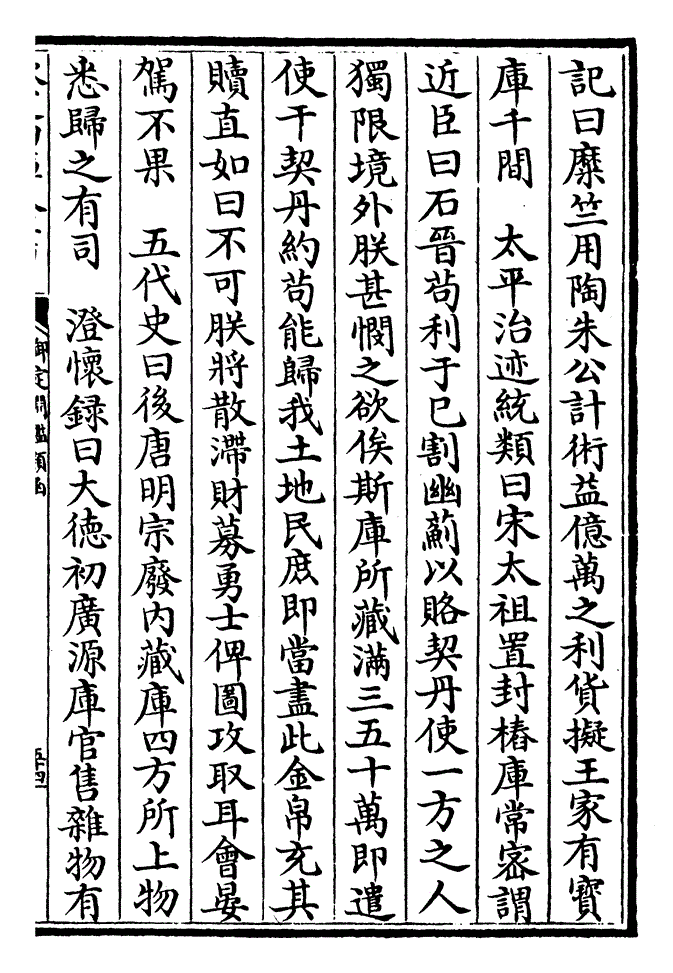 記曰糜竺用陶朱公計術益億萬之利貨擬王家有寶
庫千間　太平治迹統類曰宋太祖置封樁庫常密謂
近臣曰石晉茍利于已割幽薊以賂契丹使一方之人
獨限境外朕甚憫之欲俟斯庫所藏滿三五十萬即遣
使干契丹約茍能歸我土地民庶即當盡此金帛充其
贖直如曰不可朕將散滯財募勇士俾圖攻取耳會晏
駕不果　五代史曰後唐明宗廢内藏庫四方所上物
悉歸之有司　澄懷録曰大徳初廣源庫官售雜物有
御定淵鑑類函